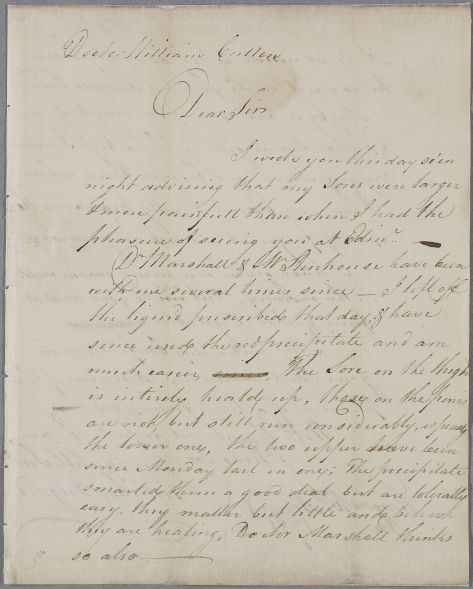 Doctor William Cullen
Dear Sir
I wrote you this day se'en
night advising that my Sores were larger
& more painfull than when I had the
pleasure of seeing you at Edinr.
Dr Marshall & Mr Stenhouse have been
with me several times since — I left off
the liquid prescribed that day, & have
since used the red precipitate and am
much easier, The Sore on the thigh
is entirely heald up, those on the
are not, but still run considerably, especially
the lower one, the two upper have been
since Monday last in one; The precipitate
smarted them a good deal but are tolerably
easy, they matter but little and I believe
they are healing, Doctor Marshall thinks
so also —